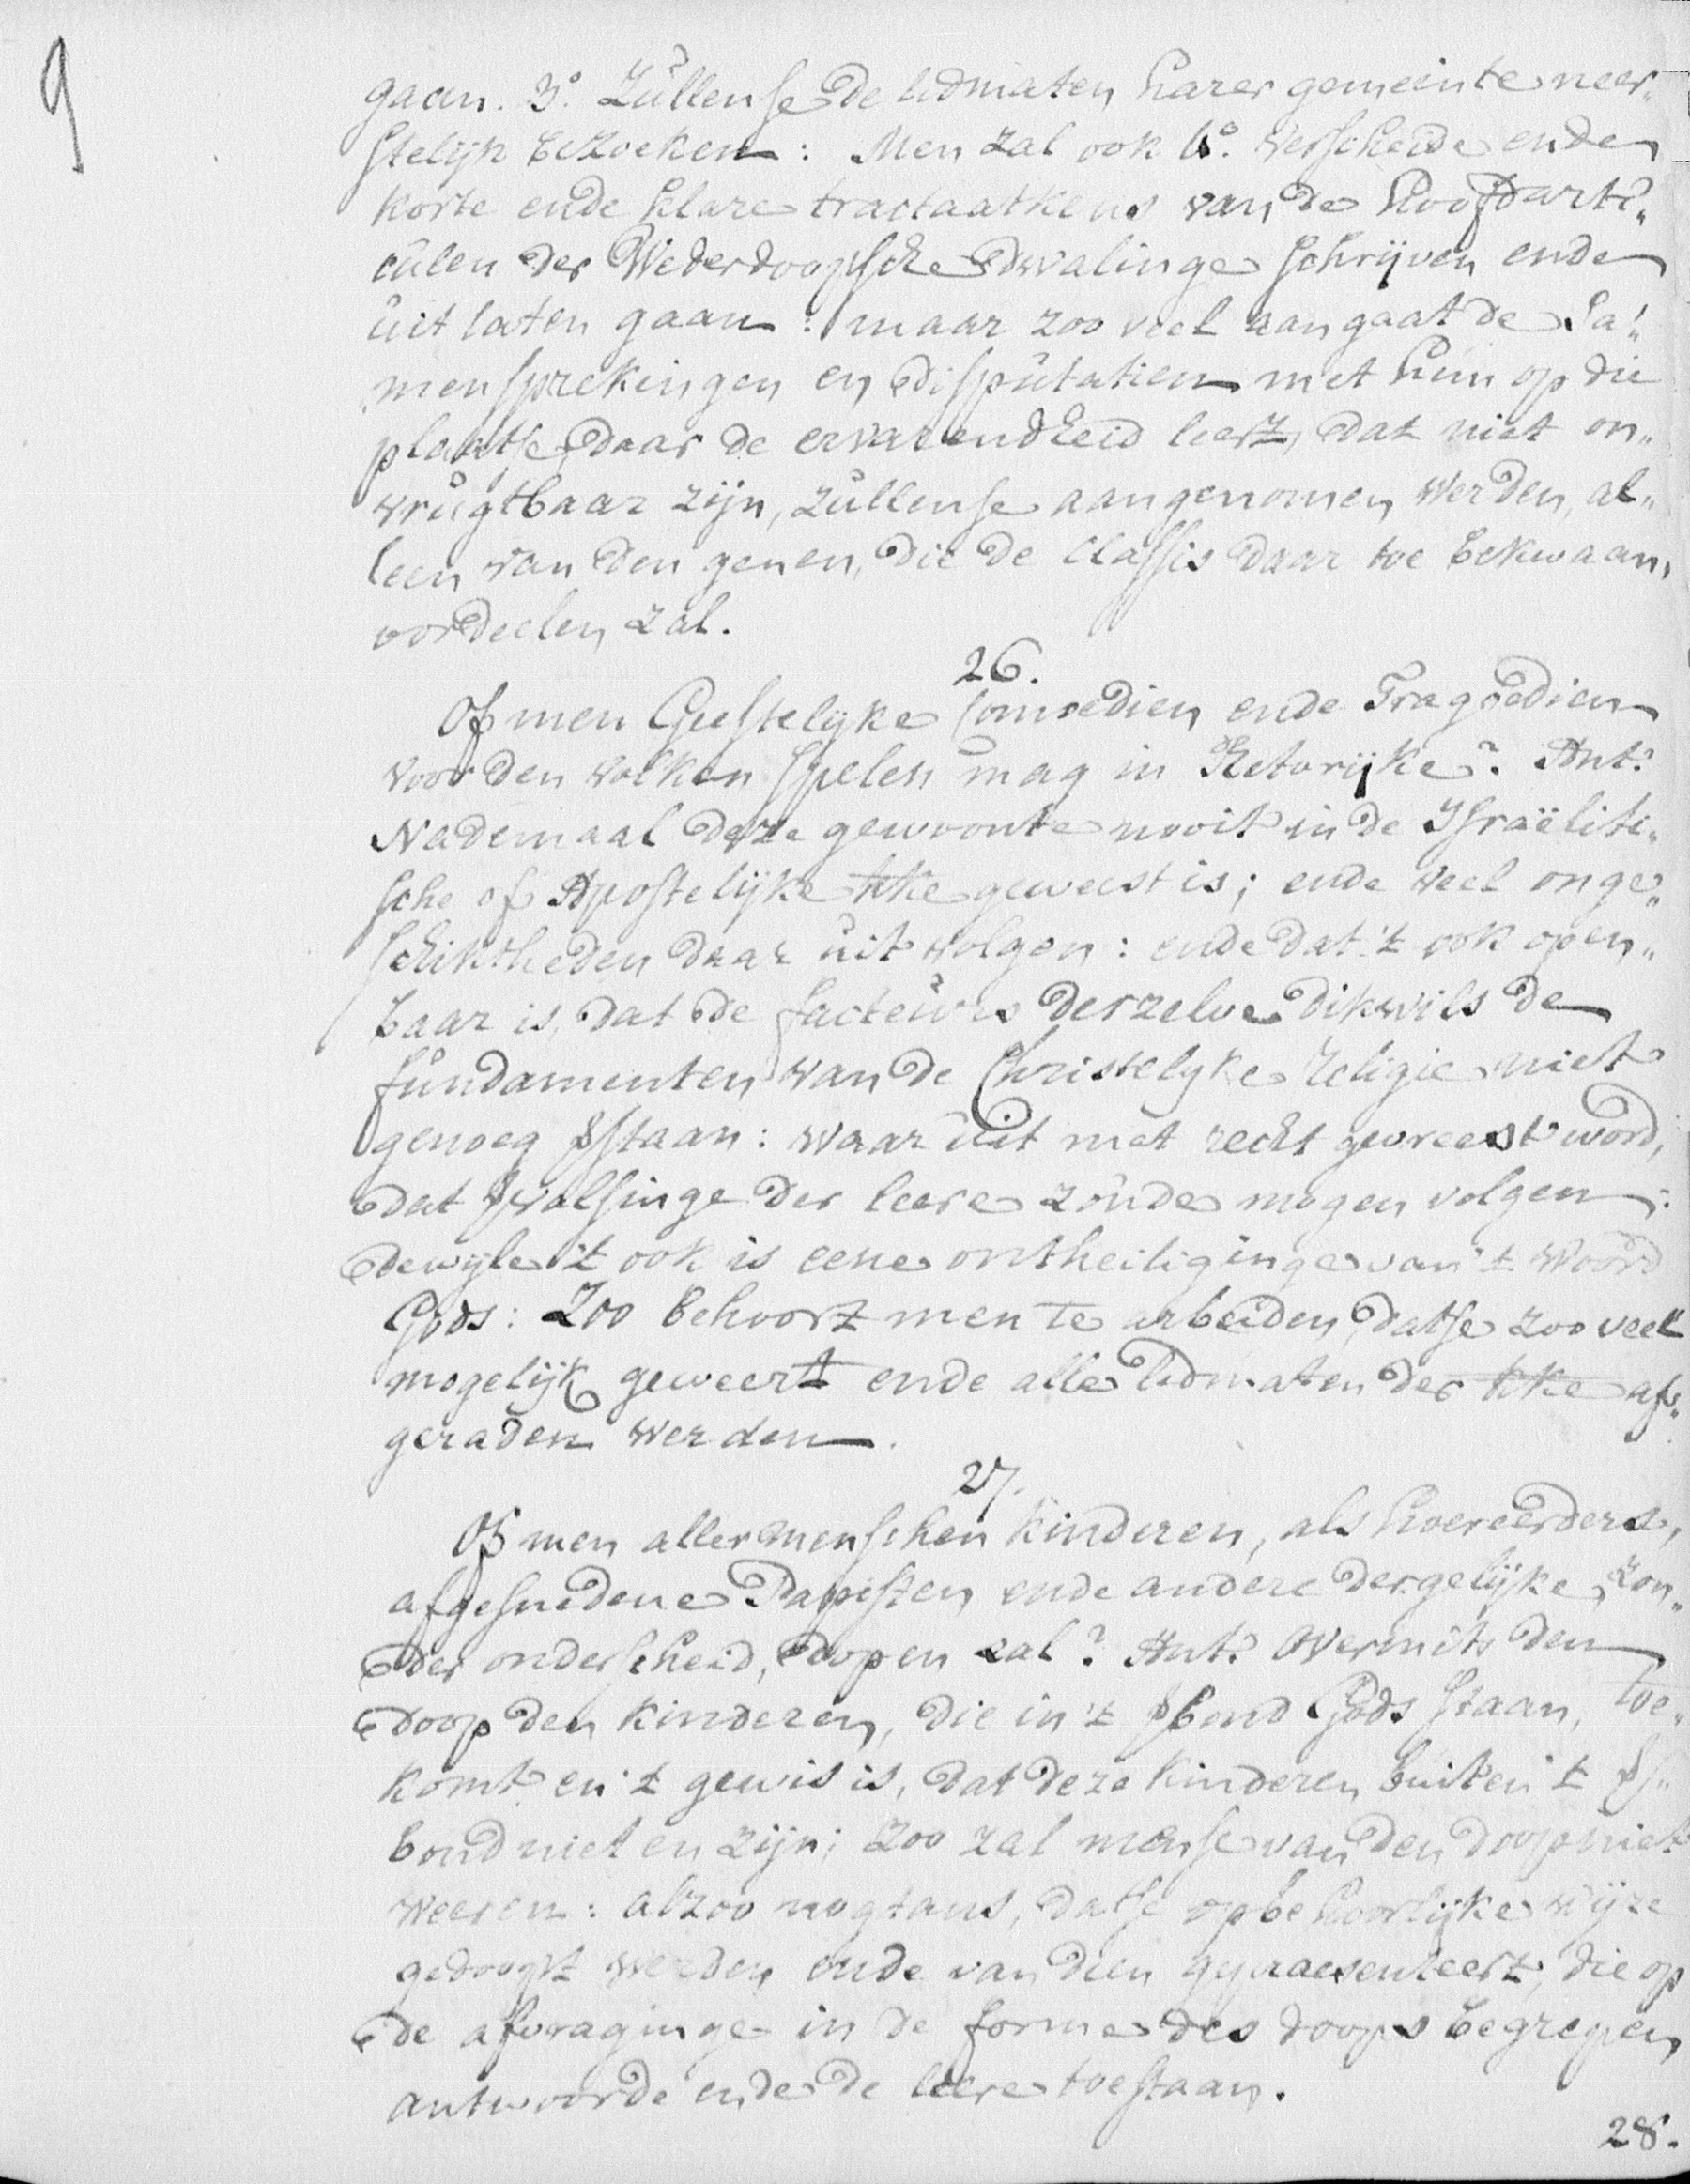 9
gaan. 5.o Zullense de lidmaten harer gemeinte neer„
stelijk bezoeken: Men zal ook 6.o verscheide ende
korte ende klare tractaatkens van de Hoofdarti„
culen der Wederdoopsche dwalinge schrijven ende
uit laten gaan: maar zoo veel aangaat de Sa„
mensprekingen en disputatien met hun op die
plaatse, daar de ervarendheid leert, dat niet on„
vrugtbaar zijn, zullense aangenomen werden, al„
leen van den genen, die de Classis daar toe bekwaam
oordeelen zal.
26.
Of men Geestelyke Comoedien ende Tragoedien
voor den volken spelen mag in Retorijke? Ant.
Nademaal deze gewoonte nooit in de Israëliti„
sche of Apostelijke kke geweest is; ende veel onge„
schiktheden daar uit volgen: ende dat 't ook open„
baar is, dat de facteurs derzelve dikwils de
fundamenten van de Christelyke religie niet
genoeg vstaan: waar uit met recht gevreest word,
dat vvalsinge der leere zoude mogen volgen:
dewyle 't ook is eene ontheiliginge van 't Woord
Gods: Zoo behoort men te arbeiden, datse zoo veel
mogelijk geweert ende alle lidmaten der kke af„
geraden werden.
27.
Of men aller menschen kinderen, als hoereerders,
afgesnedene Papisten ende andere dergelijke, zon„
der onderscheid, dopen zal? Ant. Overmits den
doop den kinderen, die in 't vbond Gods staan, toe„
komt en 't gewis is, dat deze kinderen buiten 't v„
bond niet en zijn; zoo zal mense van den doop niet
weeren: alzoo nogtans, datse op behoorlijke wijze
gedoopt werden ende van dien gepraesenteert, die op
de afvraginge in de forme des doops begrepen
antwoorde ende de leere toestaan.
28.